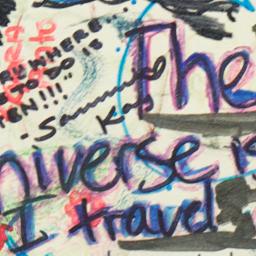 EREWHERE...
TO DO IS
EN!!!"
- Sammuel
Kay
The
niverse is
I travel